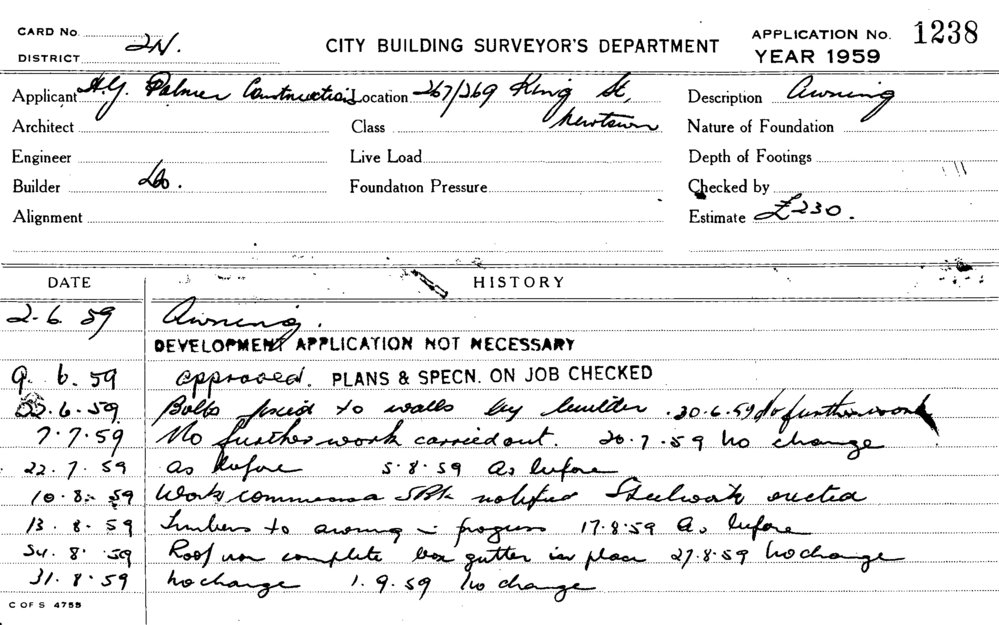 CARD No.
2N.
DISTRICT
CITY BUILDING SURVEYOR'S DEPARTMENT
APPLICATION No. 1238
YEAR 1959
Applicant Palmer Construction Location 267/269 King St, Newtown Description Awning
Architect Class Nature of Foundation
Engineer Live Load Depth of Footings
Builder Do. Foundation Pressure Checked by
Alignment Estimate £230.
DATE HISTORY
2.6.59 Awning.
DEVELOPMENT APPLICATION NOT NECESSARY
9.6.59 approved. PLANS & SPECN. ON JOB CHECKED
.6.59 Bolts fixed to walls by builder. 30.6.59 No further work
7.7.59 No further work carried out. 20.7.59 No change
22.7.59 as before 5.8.59 As before
10.8.59 Work commenced notified Steelwork erected
13.8.59 Timbers to awning in progress 17.8.59 As before
24.8.59 Roof iron complete box gutter in place 27.8.59 No change
31.8.59 No change 1.9.59 No change
C OF S 4755